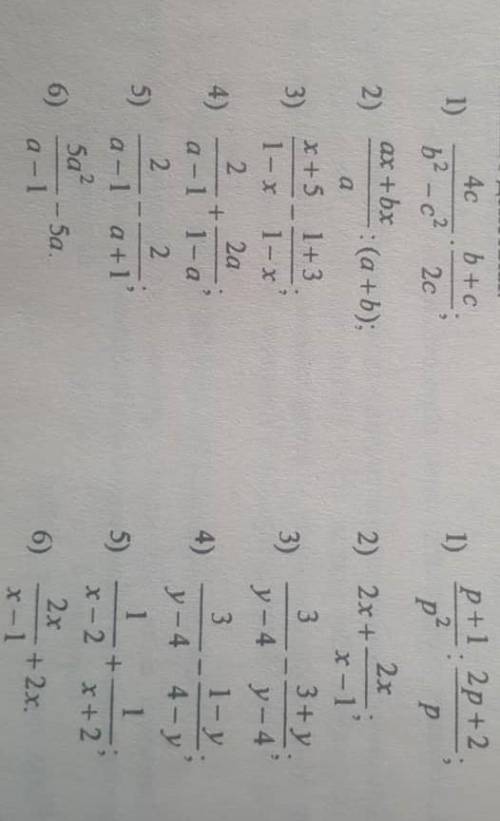 1) \frac{4c}{b^2 - c^2} \cdot \frac{b+c}{2c};
2) \frac{ax+bx}{a} : (a+b);
3) \frac{x+5}{1-x} - \frac{1+3}{1-x};
4) \frac{2}{a-1} + \frac{2a}{1-a};
5) \frac{2}{a-1} - \frac{2}{a+1};
6) \frac{5a^2}{a-1} - 5a.
1) \frac{p+1}{p^2} : \frac{2p+2}{p};
2) 2x + \frac{2x}{x-1};
3) \frac{3}{y-4} - \frac{3+y}{y-4};
4) \frac{3}{y-4} - \frac{1-y}{4-y};
5) \frac{1}{x-2} + \frac{1}{x+2};
6) \frac{2x}{x-1} + 2x.